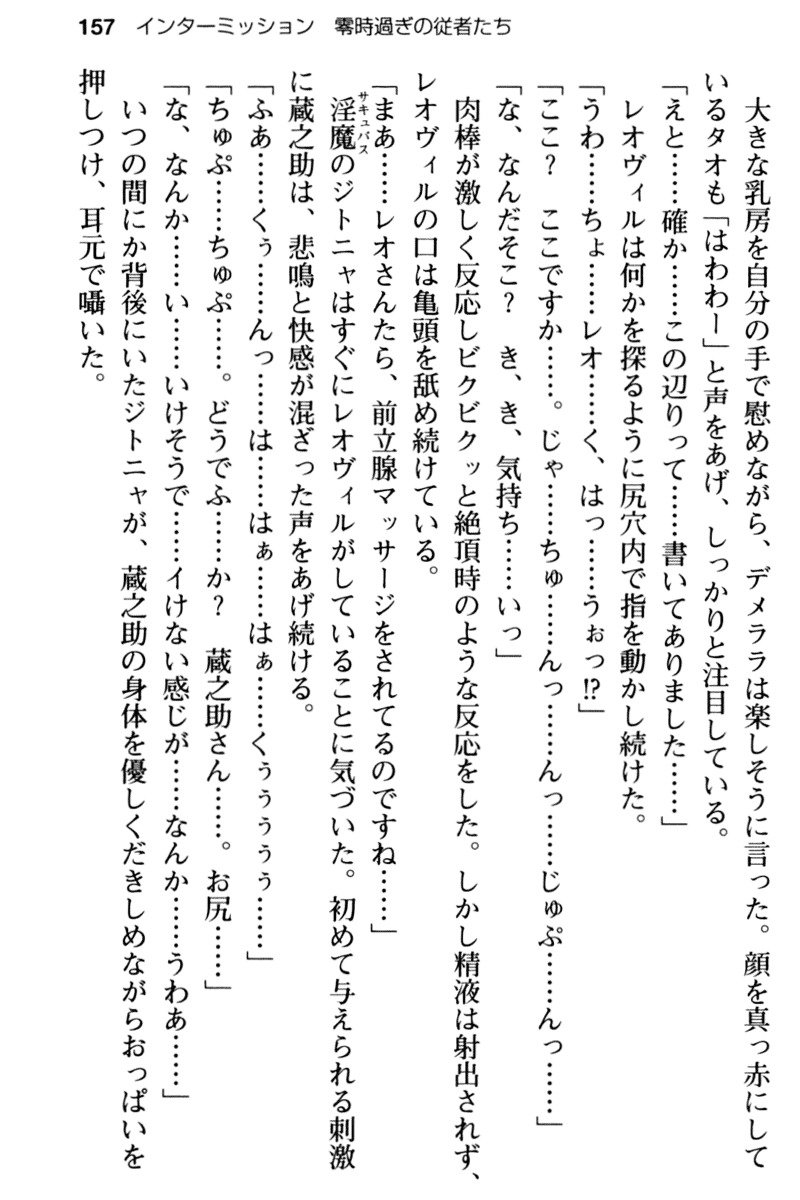 157 インターミッション 零時過ぎの従者たち
大きな乳房を自分の手で慰めながら、デメララは楽しそうに言った。顔を真っ赤にして
いるタオも「はわわー」と声をあげ、しっかりと注目している。
「えと……確か……この辺りって……書いてありました……」
レオヴィルは何かを探るように尻穴内で指を動かし続けた。
「うわ……ちょ……レオ……く、はっ……うぉっ!?」
「ここ？　ここですか……。じゃ……ちゅ……んっ……んっ……じゅぷ……んっ……」
「な、なんだそこ？　き、き、気持ち……いっ」
肉棒が激しく反応しビクビクッと絶頂時のような反応をした。しかし精液は射出されず、
レオヴィルの口は亀頭を舐め続けている。
「まあ……レオさんたら、前立腺マッサージをされてるのですね……」
淫魔のジトニャはすぐにレオヴィルがしていることに気づいた。初めて与えられる刺激
サキュバス
に蔵之助は、悲鳴と快感が混ざった声をあげ続ける。
「ふあ……くぅ……んっ……は……はぁ……はぁ……くぅぅぅぅぅ……」
「ちゅぷ……ちゅぷ……。どうでふ……か？　蔵之助さん……。お尻……」
「な、なんか……い……いけそうで……イけない感じが……なんか……うわあ……」
いつの間にか背後にいたジトニャが、蔵之助の身体を優しくだきしめながらおっぱいを
押しつけ、耳元で囁いた。